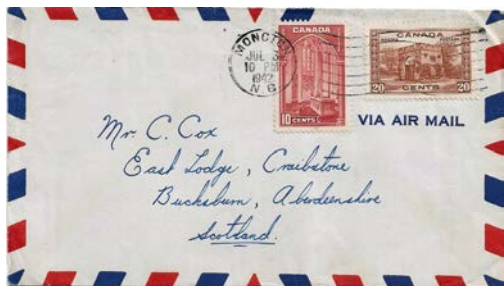 MONCTON
JUL 3
10 PM
1942
N B
CANADA
10 CENTS
CANADA
20 CENTS 20
VIA AIR MAIL
Mr. C. Cox
East Lodge, Craibstone
Bucksburn, Aberdeenshire
Scotland.